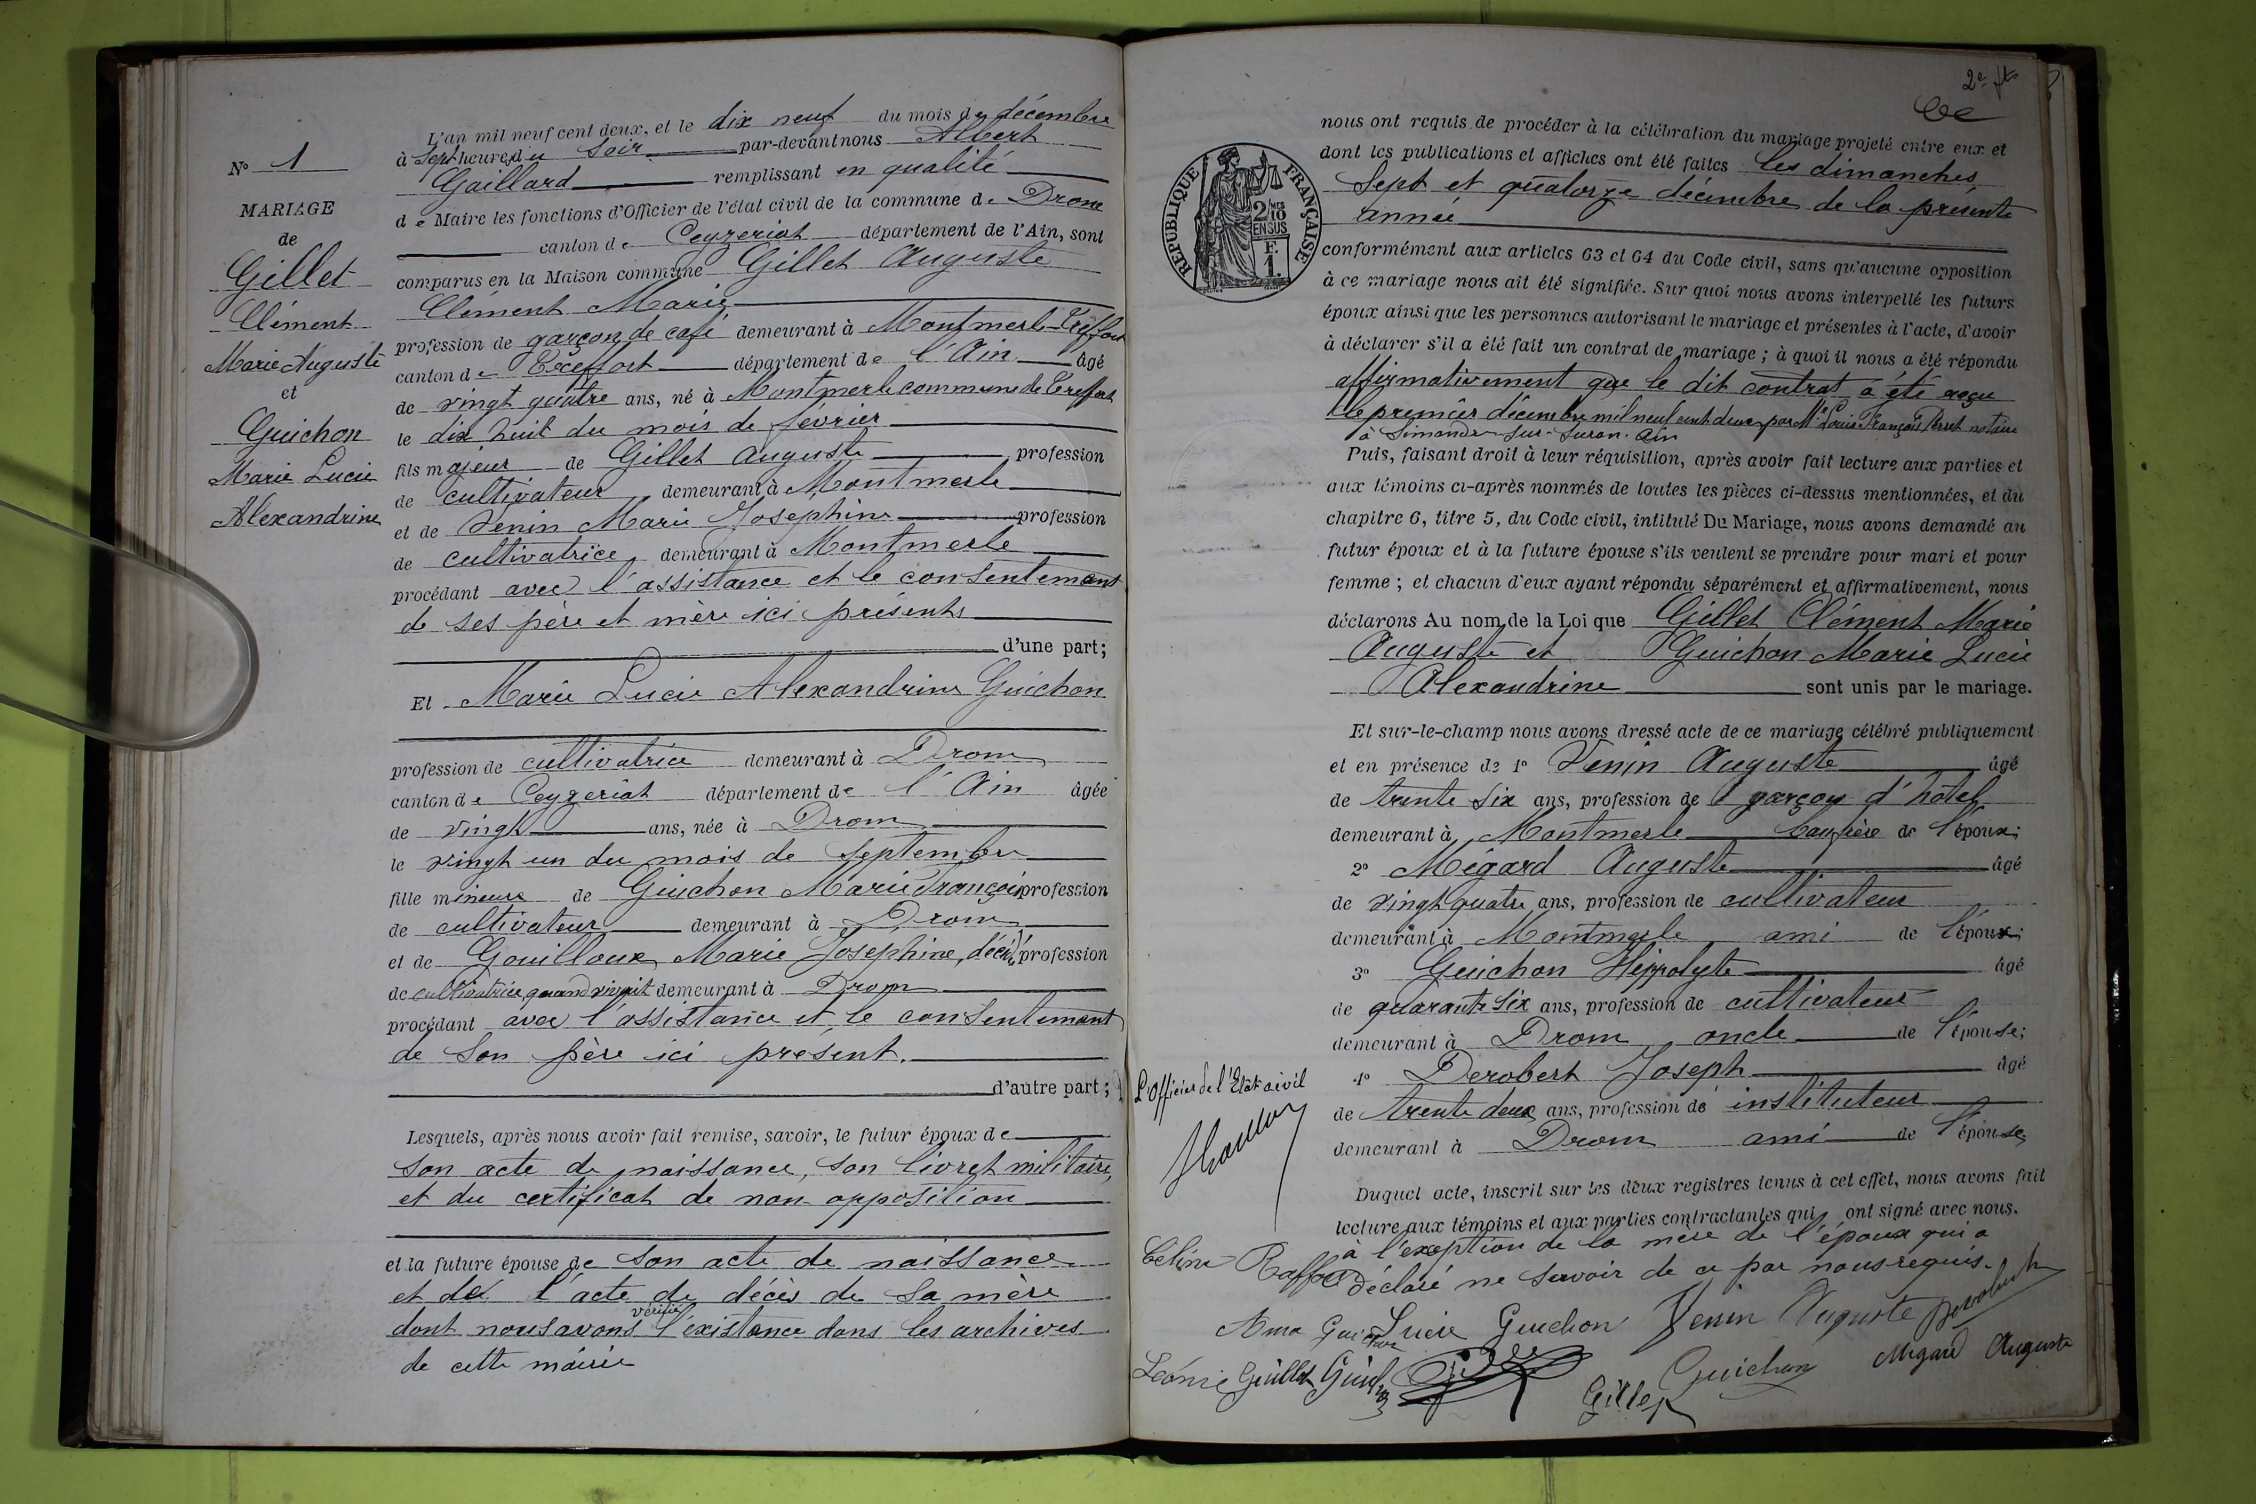 N° 1
MARIAGE
de
Gillet
Clément
Marie Auguste
et
Guichon
Marie Lucie
Alexandrine
L'an mil neuf cent deux, et le dix neuf du mois de décembre
à Sept heures du Soir par-devant nous Albert
Gaillard remplissant en qualité
de Maire les fonctions d'Officier de l'état civil de la commune de Drom
canton de Ceyzeriat département de l'Ain, sont
comparus en la Maison commune Gillet Auguste
Clément Marie
profession de garçon de café demeurant à Montmerle-Treffort
canton de Treffort département de l'Ain âgé
de vingt quatre ans, né à Montmerle commune de Treffort
le dix huit du mois de février
fils majeur de Gillet Auguste profession
de cultivateur demeurant à Montmerle
et de Venin Marie Josephine profession
de cultivatrice demeurant à Montmerle
procédant avec l'assistance et le consentement
de ses père et mère ici présents
d'une part;
Et Marie Lucie Alexandrine Guichon
profession de cultivatrice demeurant à Drom
canton de Ceyzeriat département de l'Ain âgée
de vingt ans, née à Drom
le vingt un du mois de Septembre
fille mineure de Guichon Marie François profession
de cultivateur demeurant à Drom
et de Gouilloux Marie Josephine, décéd profession
de cultivatrice quand vivait demeurant à Drom
procédant avec l'assistance et le consentement
de Son père ici présent.
d'autre part;
Lesquels, après nous avoir fait remise, savoir, le futur époux de
Son acte de naissance, son livret militaire,
et du certificat de non opposition
et la future épouse de Son acte de naissance
et de l'acte de décès de Sa mère
dont nous avons vérifié l'existence dans les archives
de cette mairie
2e
nous ont requis de procéder à la célébration du mariage projeté entre eux et
dont les publications et affiches ont été faites les dimanches
Sept et quatorze décembre de la présente
année
RÉPUBLIQUE FRANÇAISE
2/10 MES
EN SUS
F.
1.
conformément aux articles 63 et 64 du Code civil, sans qu'aucune opposition
à ce mariage nous ait été signifiée. Sur quoi nous avons interpellé les futurs
époux ainsi que les personnes autorisant le mariage et présentes à l'acte, d'avoir
à déclarer s'il a été fait un contrat de mariage; à quoi il nous a été répondu
affirmativement que le dit contrat a été reçu
le premier décembre mil neuf cent deux par Me Louis François Perret notaire
à Simandre-sur-Suran. Ain
Puis, faisant droit à leur réquisition, après avoir fait lecture aux parties et
aux témoins ci-après nommés de toutes les pièces ci-dessus mentionnées, et du
chapitre 6, titre 5, du Code civil, intitulé Du Mariage, nous avons demandé au
futur époux et à la future épouse s'ils veulent se prendre pour mari et pour
femme; et chacun d'eux ayant répondu séparément et affirmativement, nous
déclarons Au nom de la Loi que Gillet Clément Marie
Auguste et Guichon Marie Lucie
Alexandrine sont unis par le mariage.
Et sur-le-champ nous avons dressé acte de ce mariage célébré publiquement
et en présence de 1° Venin Auguste âgé
de trente six ans, profession de garçon d'hôtel
demeurant à Montmerle beaufrère de l'époux;
2° Mégard Auguste âgé
de vingt quatre ans, profession de cultivateur
demeurant à Montmerle ami de l'époux;
3° Guichon Hippolyte âgé
de quarante six ans, profession de cultivateur
demeurant à Drom oncle de l'épouse;
4° Derobert Joseph âgé
de trente deux ans, profession de instituteur
demeurant à Drom ami de l'épouse,
Duquel acte, inscrit sur les deux registres tenus à cet effet, nous avons fait
lecture aux témoins et aux parties contractantes qui ont signé avec nous.
à l'exception de la mère de l'époux qui a
déclaré ne Savoir de ce par nous requis.
L'officier de l'Etat civil
Céline
Lucie Guichon Venin Auguste Derobert
Léonie Guillot Guichon
Gillet Guichon Mégard Auguste